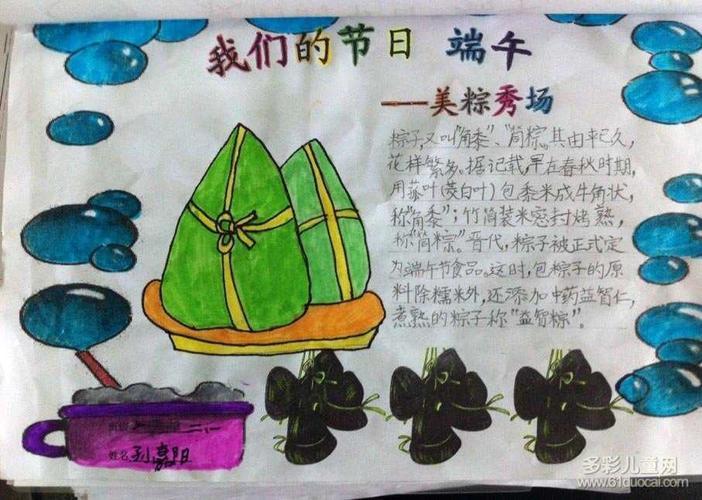 我们的节日 端午
——美粽秀场
粽子,又叫"角黍"、"筒粽"。其由来已久,
花样繁多。据记载,早在春秋时期,
用菰叶(茭白叶)包黍米成牛角状,
称"角黍";竹筒装米密封烤熟,
称"筒粽"。晋代,粽子被正式定
为端午节食品。这时,包粽子的原
料除糯米外,还添加中药益智仁,
煮熟的粽子称"益智粽"。
二、一
姓名
多彩儿童网
www.61duocai.com